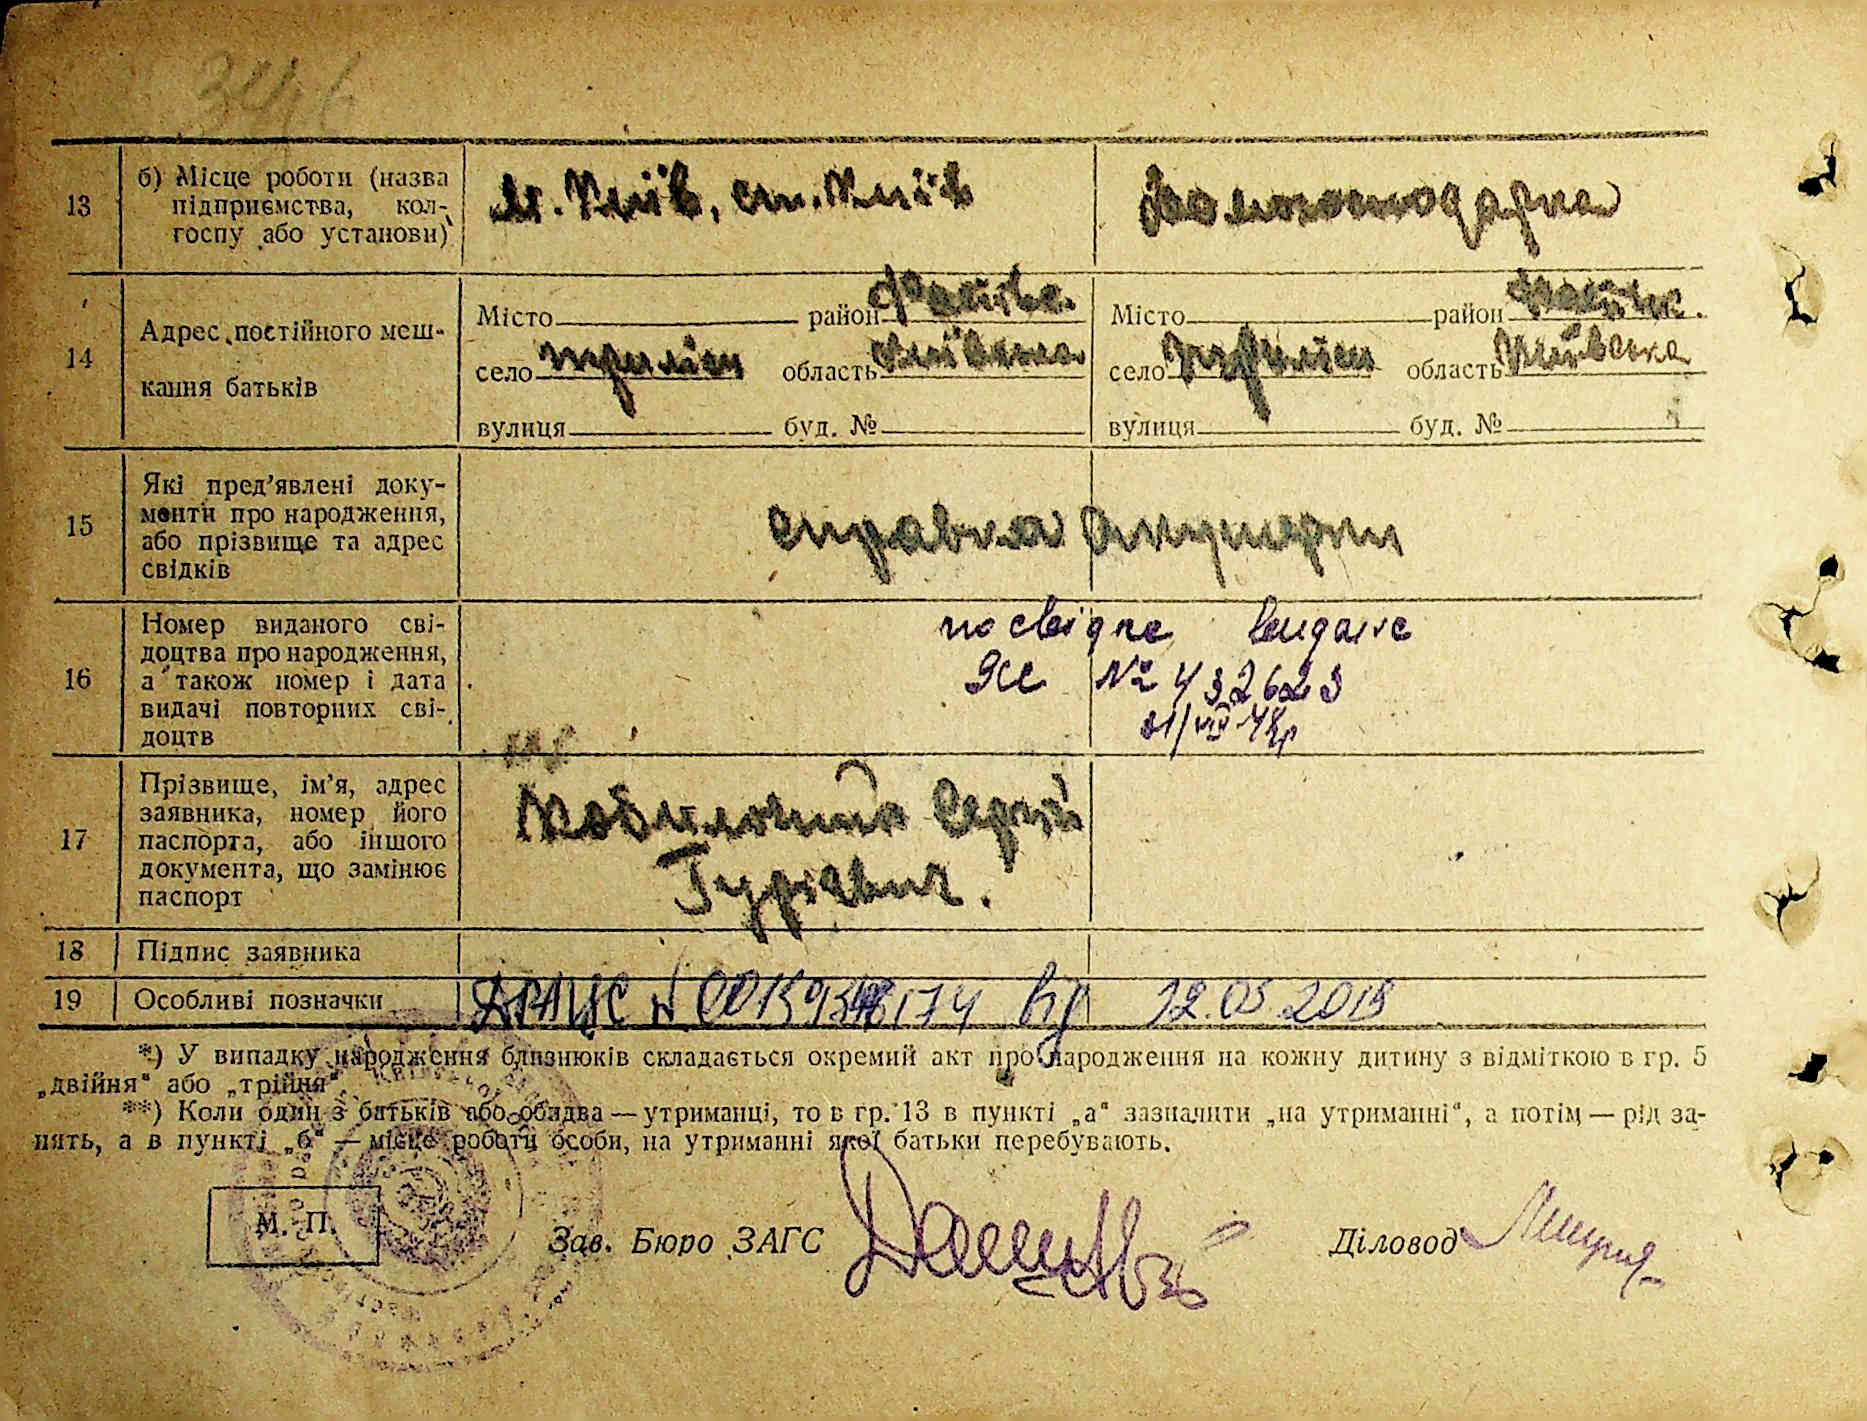 13
б) Місце роботи (назва
підприємства, кол-
госпу або установи)
м. Київ, ст. Київ
Домогосподарка
14
Адрес постійного меш-
кання батьків
Місто район Фастівс.
село Триліси область Київська
вулиця буд. №
Місто район Фастівс.
село Триліси область Київська
вулиця буд. №
15
Які пред’явлені доку-
менти про народження,
або прізвище та адрес
свідків
справка Акушерки
16
Номер виданого сві-
доцтва про народження,
а також номер і дата
видачі повторних сві-
доцтв
посвідне видане
ЯЄ № 432623
31/VIII 48р
17
Прізвище, ім’я, адрес
заявника, номер його
паспорта, або іншого
документа, що замінює
паспорт
Сергій
Гурієвич.
18
Підпис заявника
19
Особливі позначки
ДРАЦС N від 12.03.2015
*) У випадку народження близнюків складається окремий акт про народження на кожну дитину з відміткою в гр. 5
„двійня“ або „трійня“.
**) Коли один з батьків або обидва — утриманці, то в гр. 13 в пункті „а“ зазначити „на утриманні“, а потім — рід за-
нять, а в пункті „б“ — місце роботи особи, на утриманні якої батьки перебувають.
М. П.
Зав. Бюро ЗАГС
Діловод